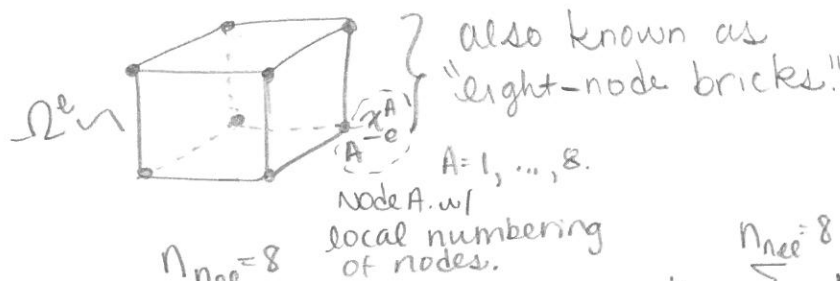 also known as
"eight-node bricks."
Ωᵉ
x_e^A
A
A=1, ..., 8.
Node A. w/
local numbering
of nodes.
n_nne = 8
n_nee = 8